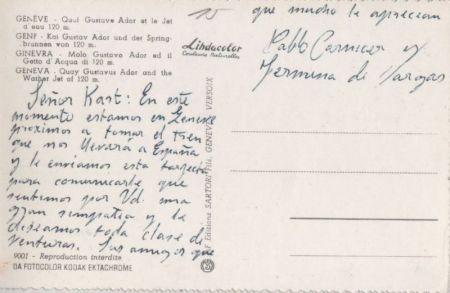 GENÈVE - Quai Gustave Ador et le Jet
d'eau 120 m.
GENF - Kai Gustav Ador und der Spring-
brunnen von 120 m.
GINEVRA - Molo Gustave Ador ed il
Getto d'Acqua di 120 m.
GENEVA - Quay Gustavus Ador and the
Wather Jet of 120 m.
Señor Kast: En este
momento estamos en Geneve
proximos a tomar el tren
que nos llevará a España
y le enviamos esta tarjeta
para comunicarle que
sentimos por Vd. una
gran simpatia y le
deseamos toda clase de
venturas. Sus amigos que
9001 - Reproduction interdite
DA FOTOCOLOR KODAK EKTACHROME
Libdacolor
Couleurs Naturelles
Editions SARTORI Fils, GENÈVE - VERSOIX
que mucho le aprecian
Pablo Carnicer y
Fermina de Vargas